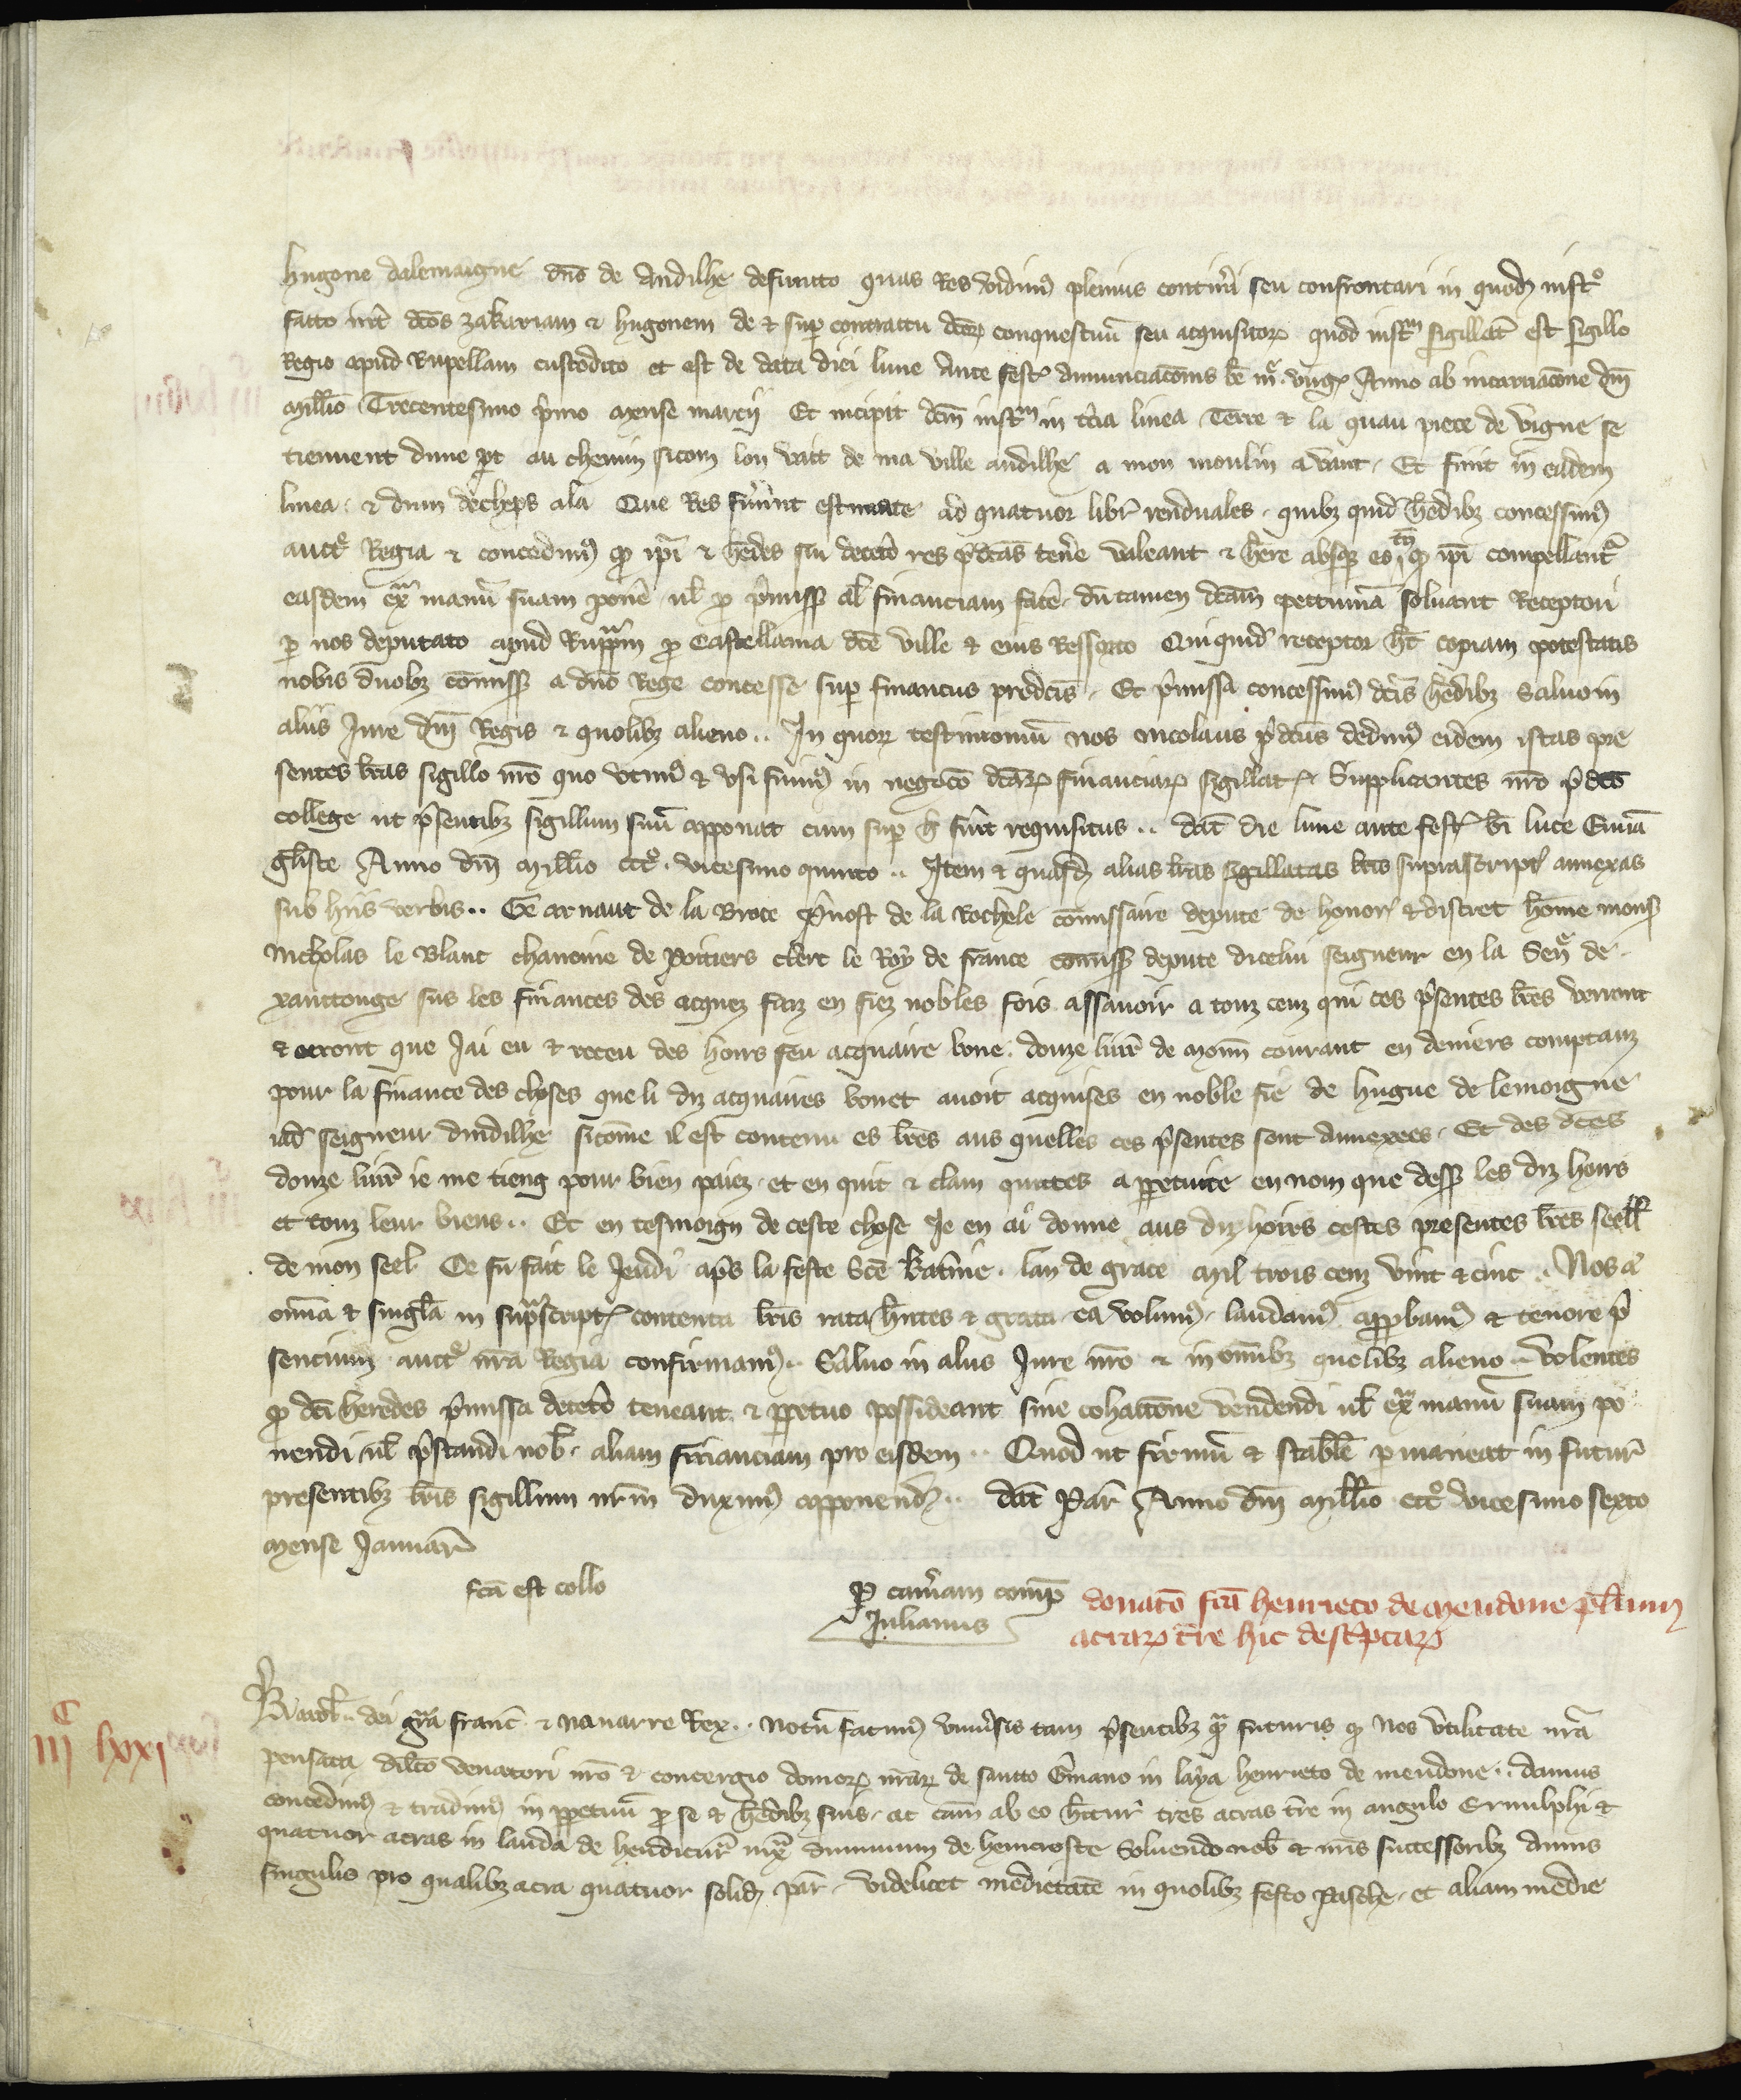 hugone dalemaigne dno de Andilhe defuncto quas Res vidimus plenius contineri seu confrontari in quodam instro
facto intr dcos zakariam et hugonem de et super contractu dcorum conquestuum seu acquisitorum quod instrm sigillatum est sigillo
Regio apud Rupellam custodito et est de data diei lune Ante festum Annunciacionis be mar. virginis Anno ab incarnacione dni
Millio Trecentesimo primo mense marcii Et incipit dcm instrm in tercia linea Terre et la quau piece de vigne se
tiennent dune part au chemin sicom lon vait de ma ville andilhe a mon moulin a vant. Et finit in eadem
linea et dum decheps ala Que Res fuerunt estimate ad quatuor libras renduales. quibus quidem heredibus concessimus
auctoritate Regia et concedimus quod ipsi et heredes sui decetero res predictas tenere valeant et habere absque eo tamen quod ipsi compellantur
easdem extra manum suam ponere vel pro premissis aliam financiam facere. dum tamen dictam peccuniam solvant Receptori
per nos deputato apud Ruppellam pro Castellania dicte ville et eius Ressorto Quiquidem receptor habet copiam potestatis
nobis duobus commissariis a dno Rege concesse super financiis predictis. Et premissa concessimus dictis heredibus Salvo in
aliis Jure dni Regis et quolibet alieno.. In quorum testimonium nos Nicolaus predictus dedimus eidem istas pre
sentes litteras sigillo nostro quo utimur et usi fuimus in negocio dictarum financiarum sigillatas. Supplicantes nostro predicto
college ut presentibus sigillum suum apponat cum super hoc fuerit requisitus.. datum die lune ante festum bi luce Evvan
geliste Anno dni Millio ccco. vicesimo quinto.. Item et quasdam alias litteras sigillatas litteris suprascriptis annexas
sub hiis verbis.. Ge arnaut de la Broce prevost de la Rochele commissaire depute de honorable et discret homme monsr
Nicholas le Blanc chanoine de Poitiers clerc le Roy de france commissaire depute dicelui seigneur en la Sen de
xanctonge sus les finances des acquez faiz en fiez nobles fois assavoir a touz ceuz qui ces presentes lettres verront
et orront que Jai eu et receu des hoirs feu acquaire bone. douze livres de monn courant en deniers comptanz
pour la finance des choses que li diz acquaires bonet avoit acquises en noble fie de hugue de lemoigne
iad seigneur dandilhe sicomme il est contenu es lettres aus quelles ces presentes sont annexees. Et des dictes
douze livres ie me tieng pour bien paiez et en quit et clam quittes a perpetuite en nom que dessus les diz hoirs
et touz leur biens.. Et en tesmoign de ceste chose Je en ai donne aus diz hoirs cestes presentes lettres seell
de mon seel. Ce fu fait le Jeudi apres la feste Sce Katerine. lan de grace mil trois cenz vint et cinc.. Nos autem
omnia et singula in suprascriptis contenta litteris rata habentes et grata ea volumus. laudamus approbamus et tenore pre
sencium auctoritate nostra Regia confirmamus.. Salvo in aliis Jure nostro et in omnibus quolibet alieno.. Volentes
quod dicti heredes premissa decetero teneant et perpetuo possideant sine cohactione vendendi vel extra manum suam po
nendi vel prestandi nobis aliam financiam pro eisdem.. Quod ut firmum et stabile permaneat in futurum
presentibus litteris sigillum nostrum duximus apponendum.. datum Par Anno dni Millio ccco vicesimo sexto
mense Januar
fca est collo
P cameram comp
Julianus
donatio fca henrico de meudone plurium
acrarum terre hic descriptarum
IIIc lxxi
Karol. dei gra franc et navarre Rex.. Notum facimus universis tam presentibus quam futuris quod nos utilitate nostra
pensata dilecto venatori nostro et concergio domorum nostrarum de sancto Germano in laya henrico de meudone.. damus
concedimus et tradimus in perpetuum pro se et heredibus suis. ac causam ab eo habituris tres acras terre in angulo Ernulphi et
quatuor acras in landa de hendicuria iuxta dumum de hemcroste Solvendo nobis et nostris successoribus annis
singulis pro qualibet acra quatuor solidos par. videlicet medietatem in quolibet festo Pasche. et aliam medie